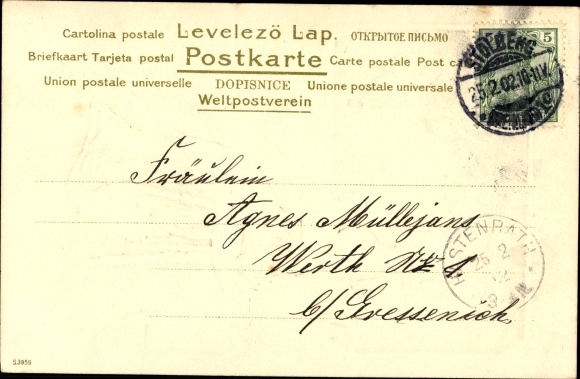 Cartolina postale Levelező Lap. ОТКРЫТОЕ ПИСЬМО
Briefkaart Tarjeta postal Postkarte Carte postale Post ca
Union postale universelle DOPISNICE Unione postale universale
Weltpostverein
5
STOLBERG
25.2.02.10-11V.
Fräulein
Agnes Müllejans
Werth No 1
b/ Gressenich
HASTENRATH
25 2
S3959